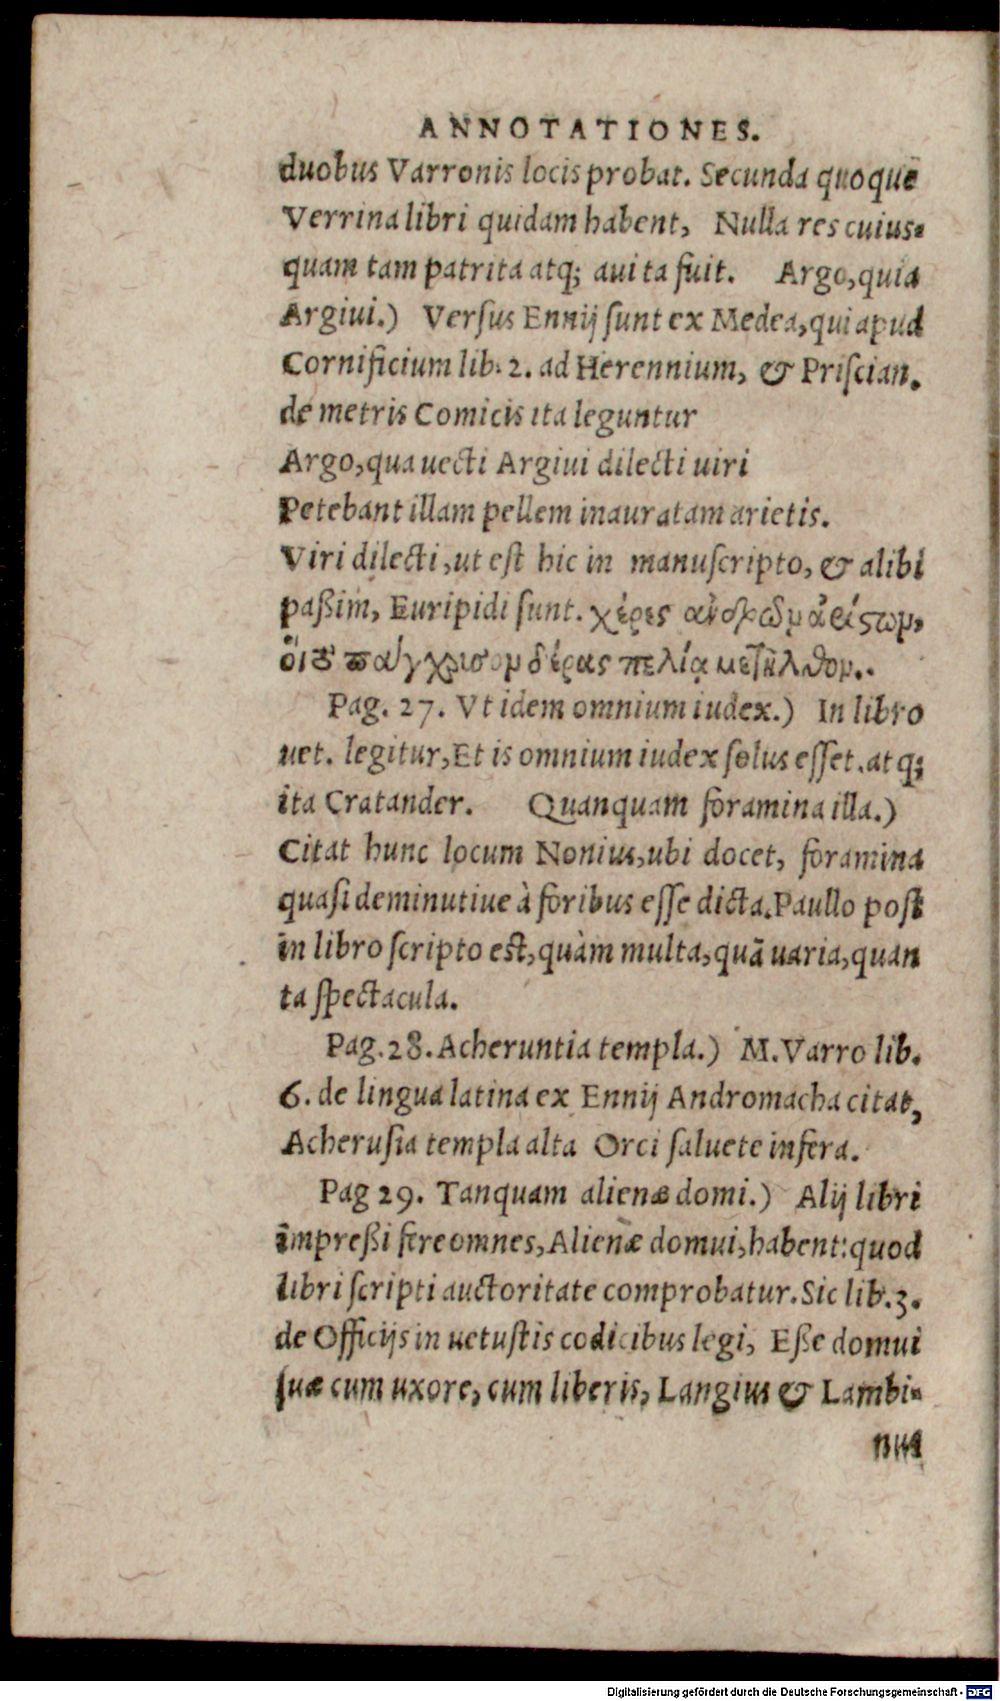 ANNOTATIONES.
duobus Varronis locis probat. Secunda quoque
Verrina libri quidam habent, Nulla res cuius-
quam tam patrita atq; auita fuit. Argo, quia
Argiui.) Versus Ennij sunt ex Medea, qui apud
Cornificium lib. 2. ad Herennium, & Priscian.
de metris Comicis ita leguntur
Argo, qua uecti Argiui dilecti uiri
Petebant illam pellem inauratam arietis.
Viri dilecti, ut est hic in manuscripto, & alibi
paßim, Euripidi sunt. χέρες ἀνδρῶν ἀρίστων,
οἳ τὸ πάγχρυσον δέρας πελίᾳ μετῆλθον..
Pag. 27. Vt idem omnium iudex.) In libro
uet. legitur, Et is omnium iudex solus esset. atq;
ita Cratander. Quanquam foramina illa.)
Citat hunc locum Nonius, ubi docet, foramina
quasi deminutiue à foribus esse dicta. Paullo post
in libro scripto est, quàm multa, quā uaria, quan
ta spectacula.
Pag. 28. Acheruntia templa.) M. Varro lib.
6. de lingua latina ex Ennij Andromacha citat,
Acherusia templa alta Orci saluete infera.
Pag 29. Tanquam alienæ domi.) Alij libri
impreßi fere omnes, Alienæ domui, habent: quod
libri scripti auctoritate comprobatur. Sic lib. 3.
de Officijs in uetustis codicibus legi, Eße domui
suæ cum uxore, cum liberis, Langius & Lambi-
nus
Digitalisierung gefördert durch die Deutsche Forschungsgemeinschaft - DFG